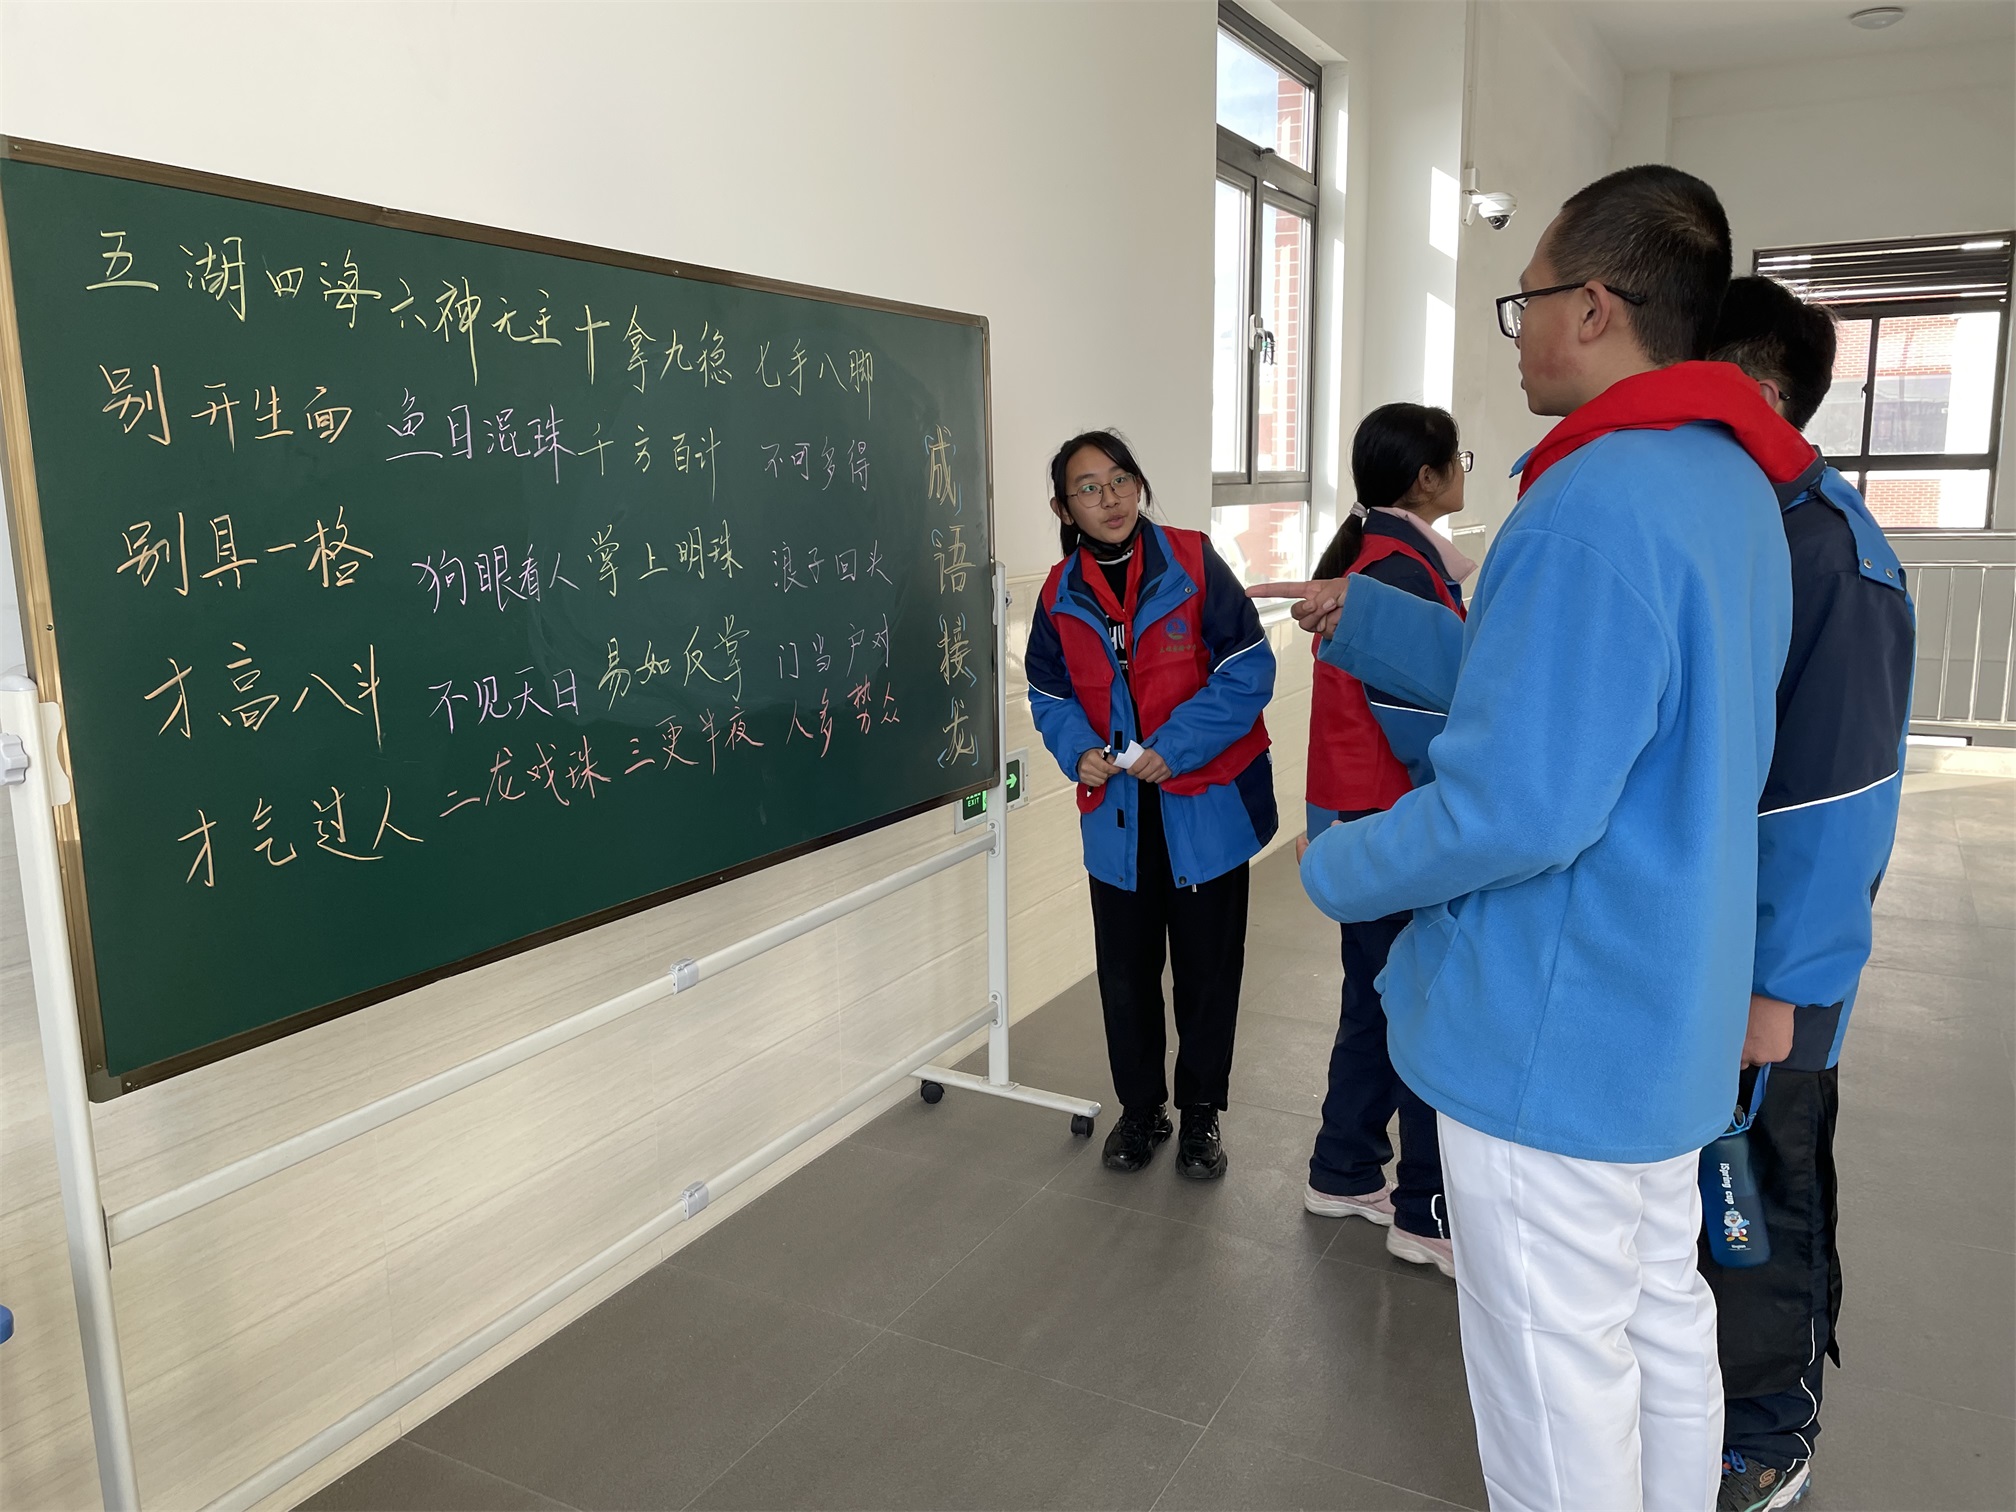 五湖四海 六神无主 十拿九稳 七手八脚
别开生面 鱼目混珠 千方百计 不可多得
别具一格 狗眼看人 掌上明珠 浪子回头
才高八斗 不见天日 易如反掌 门当户对
才气过人 二龙戏珠 三更半夜 人多势众
成语接龙
EXIT
iSpring cup